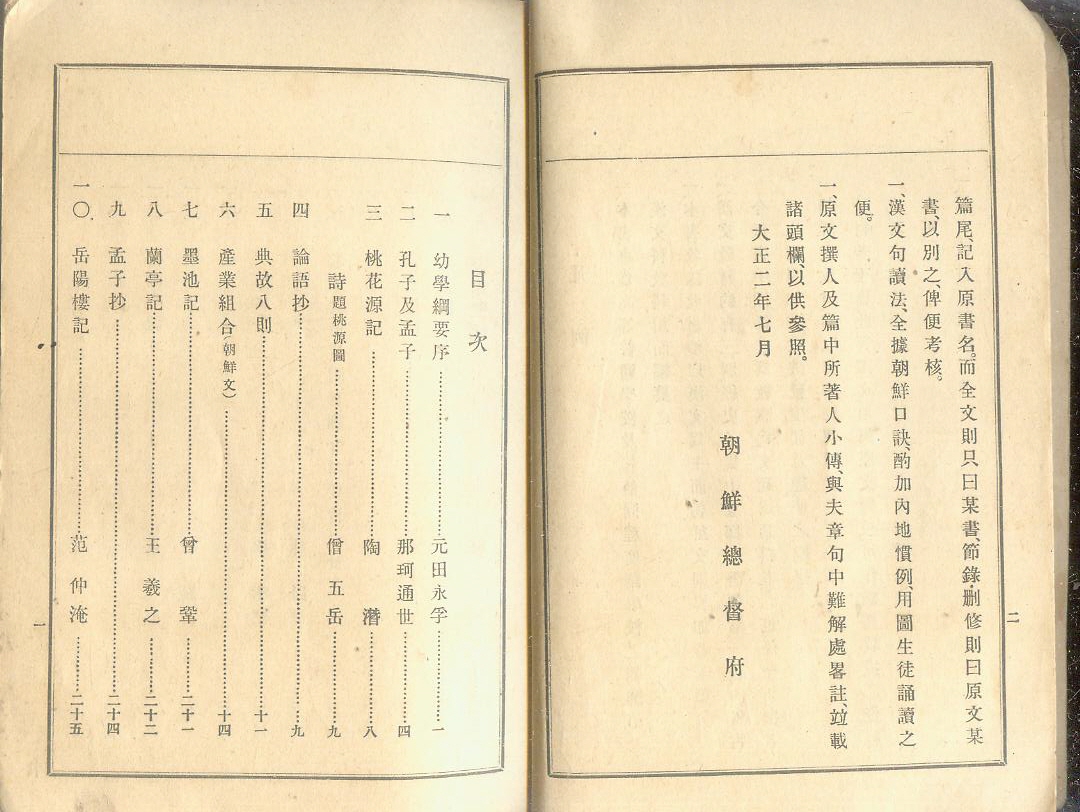 篇尾、記入原書名。而全文則只曰某書、節錄・刪修則曰原文某
書、以別之、俾便考核。
一、漢文句讀法、全據朝鮮口訣、酌加內地慣例、用圖生徒誦讀之
便。
一、原文撰人及篇中所著人小傳、與夫章句中難解處畧註、竝載
諸頭欄、以供參照。
大正二年七月
朝鮮總督府
二
目次
一 幼學綱要序 元田永孚 一
二 孔子及孟子 那珂通世 四
三 桃花源記 陶潛 八
詩題桃源圖 僧五岳 九
四 論語抄 九
五 典故八則 十一
六 產業組合(朝鮮文) 十四
七 墨池記 曾鞏 二十一
八 蘭亭記 王羲之 二十二
九 孟子抄 二十四
一〇 岳陽樓記 范仲淹 二十五
一